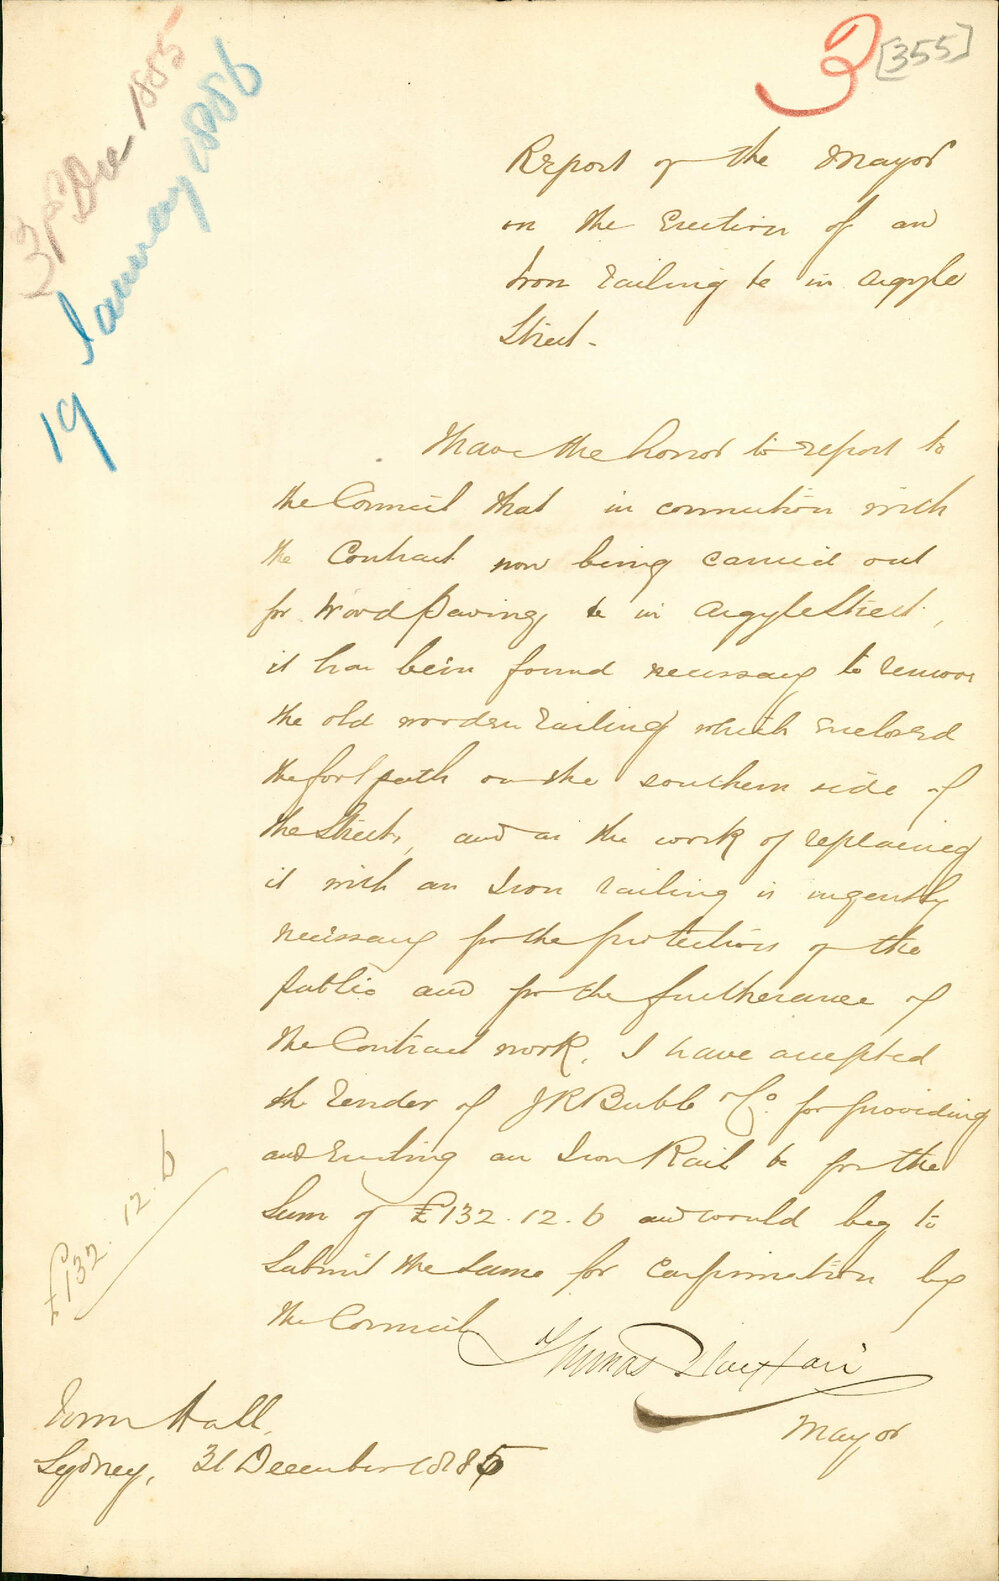 3
[355]
3rd Dec 1885
19 January 1886
Report of the Mayor
on the Erection of an
Iron railing &c in Argyle
Street -
I have the honor to report to
the Council that in connection with
the Contract now being carried out
for Wood Paving, &c in Argyle Street,
it has been found necessary to remove
the old wooden railing which enclosed
the foot path on the southern side of
the Street, and as the work of replacing
it with an Iron railing is urgently
necessary for the protection of the
public and for the furtherance of
the Contract work, I have accepted
the tender of J R Bubb & Co. for providing
and Erecting an Iron Rail &c for the
Sum of £132.12.6 and would beg to
Submit the same for Confirmation by
the Council
£132.12.6
Thomas Playfair
Mayor
Town Hall,
Sydney, 31 December 1885